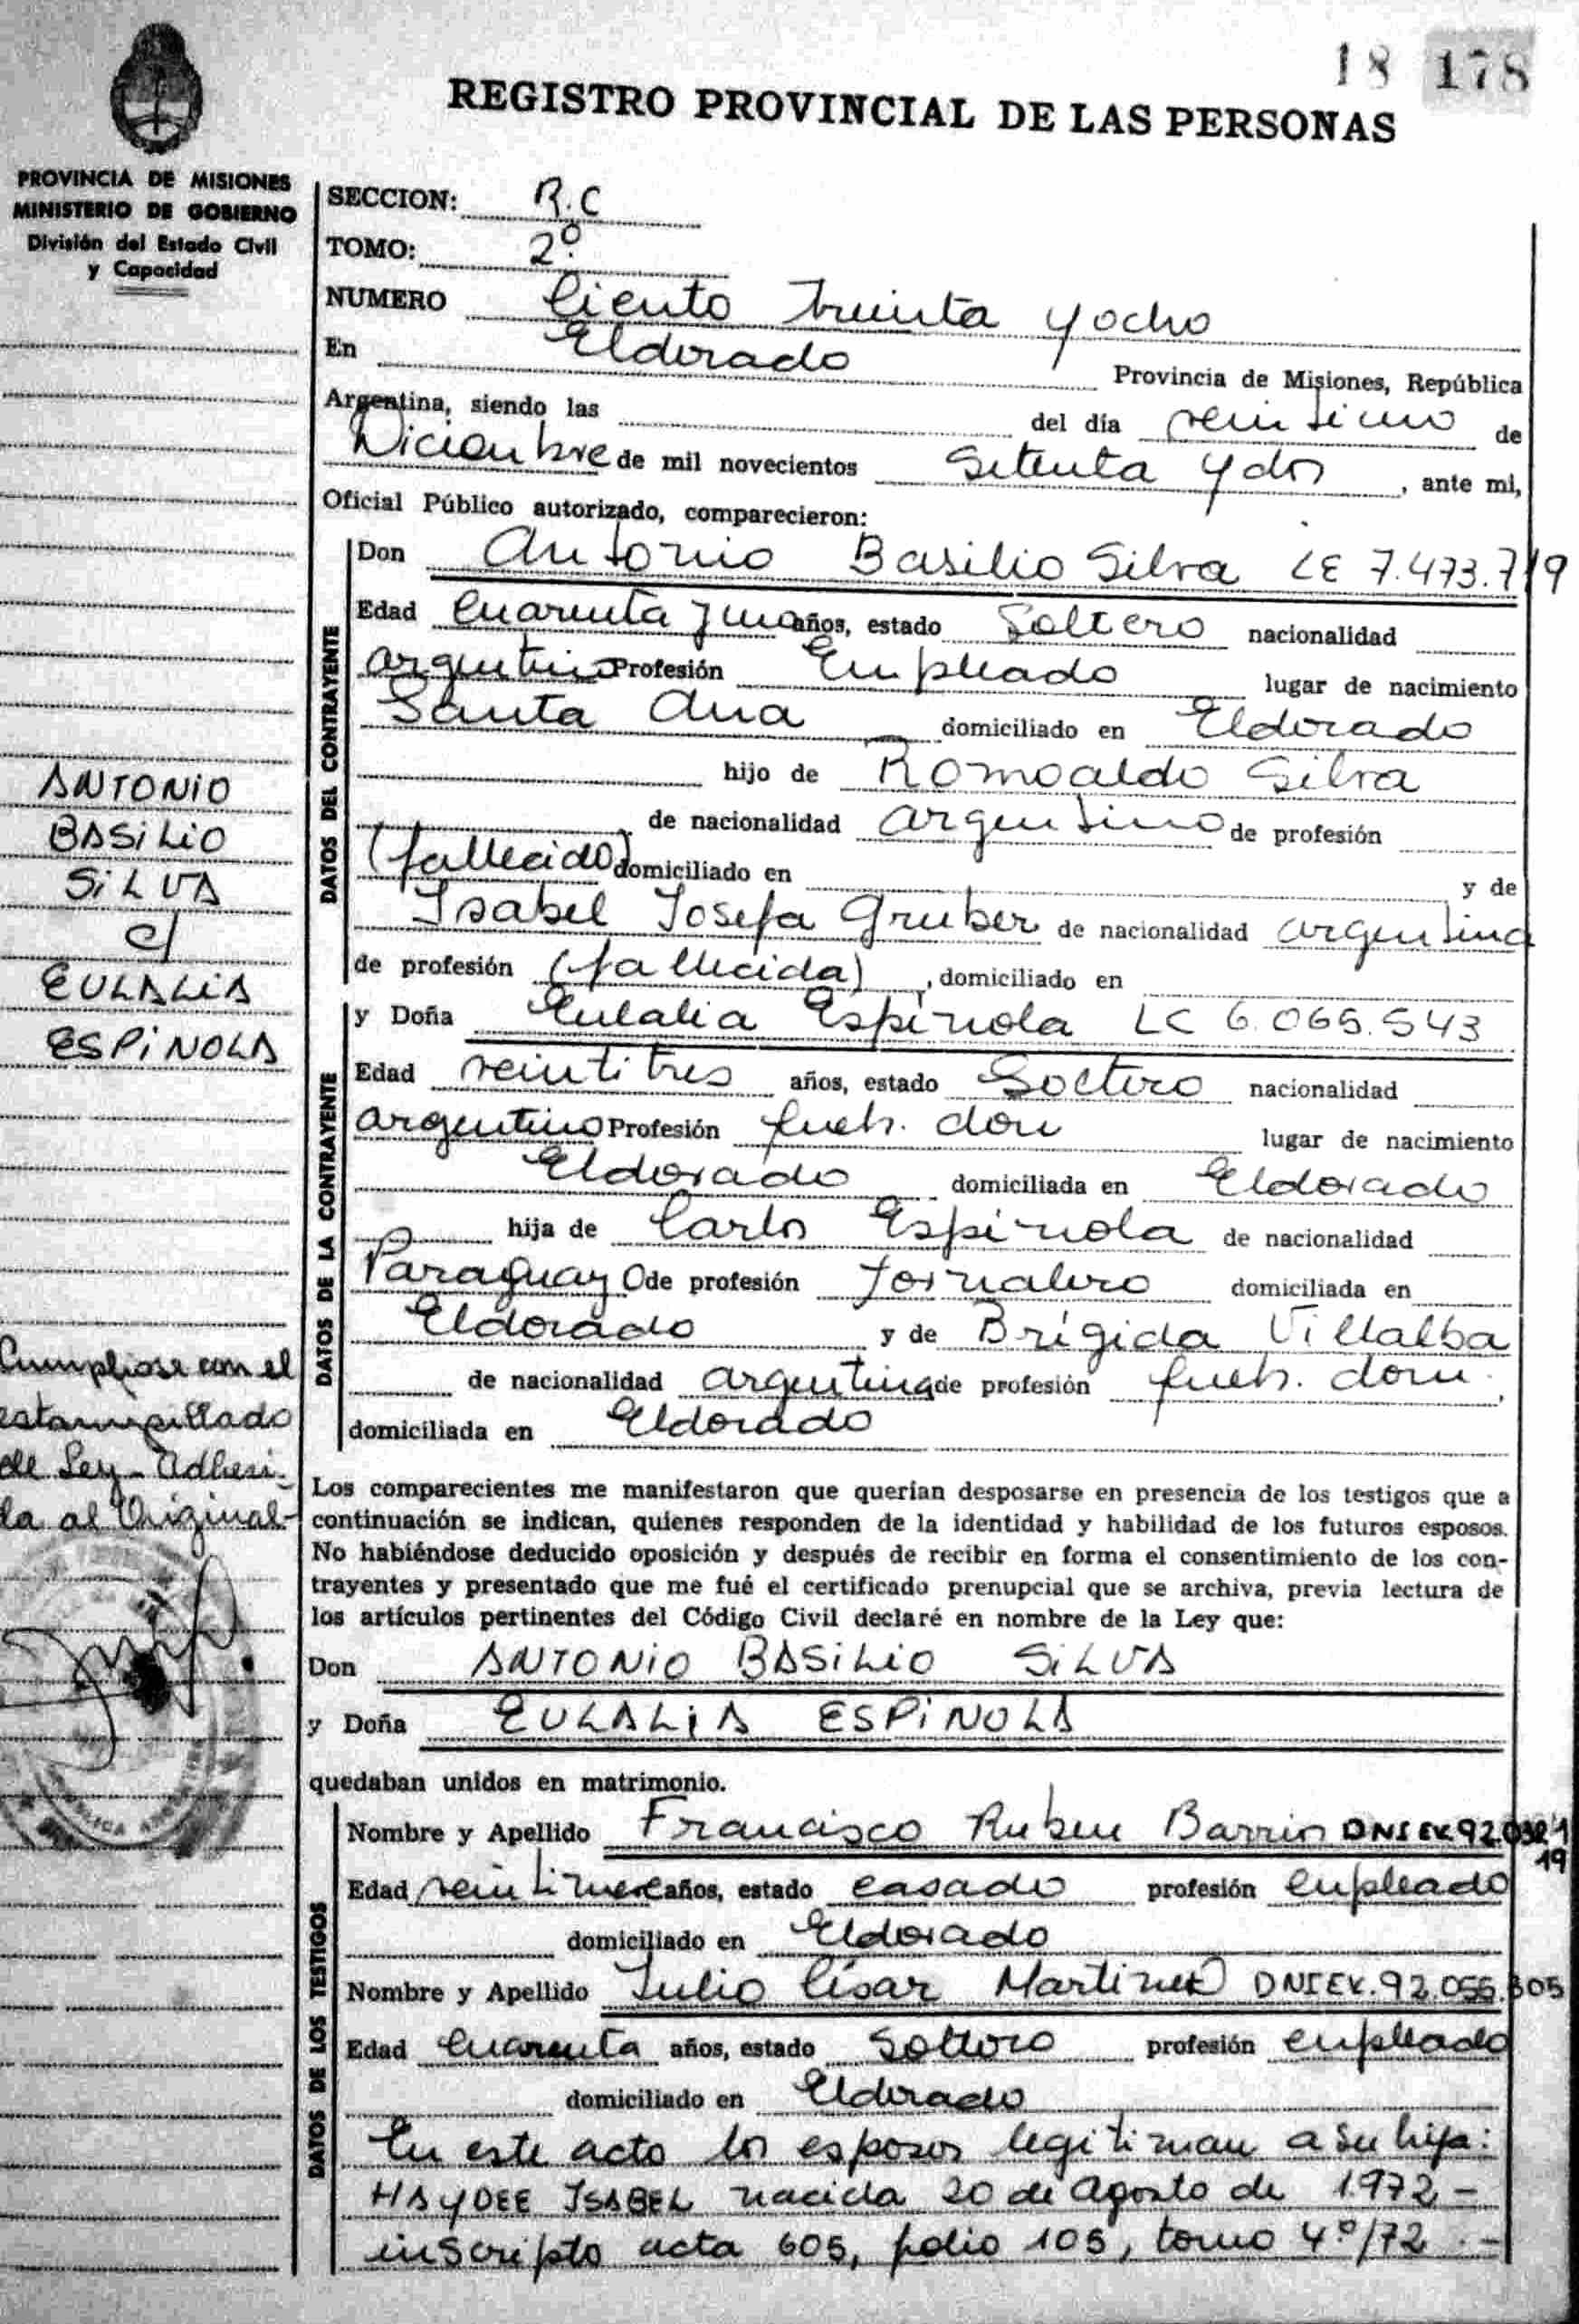 18 178
REGISTRO PROVINCIAL DE LAS PERSONAS
PROVINCIA DE MISIONES
MINISTERIO DE GOBIERNO
División del Estado Civil
y Capacidad
SECCION: R.C
TOMO: 2º
NUMERO Ciento treinta y ocho
En Eldorado Provincia de Misiones, República
Argentina, siendo las del día veintiuno de
Diciembre de mil novecientos Setenta y dos, ante mi,
Oficial Público autorizado, comparecieron:
DATOS DEL CONTRAYENTE
Don Antonio Basilio Silva LE 7.473.719
Edad Cuarenta y un años, estado Soltero nacionalidad
argentino Profesión Empleado lugar de nacimiento
Santa Ana domiciliado en Eldorado
hijo de Romoaldo Silva
de nacionalidad argentino de profesión
(fallecido) domiciliado en y de
Isabel Josefa Gruber de nacionalidad argentina
de profesión (fallecida), domiciliado en
DATOS DE LA CONTRAYENTE
y Doña Eulalia Espínola LC 6.065.543
Edad veintitres años, estado Soltero nacionalidad
argentino Profesión queh. dom lugar de nacimiento
Eldorado domiciliada en Eldorado
hija de Carlos Espínola de nacionalidad
Paraguayo de profesión Jornalero domiciliada en
Eldorado y de Brígida Villalba
de nacionalidad argentina de profesión queh. dom.
domiciliada en Eldorado
ANTONIO
BASILIO
SILVA
c/
EULALIA
ESPINOLA
Cumpliose con el
estampillado
de Ley - Adheri-
da al Original-
Los comparecientes me manifestaron que querían desposarse en presencia de los testigos que a
continuación se indican, quienes responden de la identidad y habilidad de los futuros esposos.
No habiéndose deducido oposición y después de recibir en forma el consentimiento de los con-
trayentes y presentado que me fué el certificado prenupcial que se archiva, previa lectura de
los artículos pertinentes del Código Civil declaré en nombre de la Ley que:
Don ANTONIO BASILIO SILVA
y Doña EULALIA ESPINOLA
quedaban unidos en matrimonio.
DATOS DE LOS TESTIGOS
Nombre y Apellido Francisco Ruben Barrios DNI EX. 92.
19
Edad años, estado casado profesión empleado
domiciliado en Eldorado
Nombre y Apellido Julio César Martinez DNI EX. 92.055.305
Edad Cuarenta años, estado Soltero profesión empleado
domiciliado en Eldorado
En este acto los esposos legitiman a su hija:
HAYDEE ISABEL nacida 20 de Agosto de 1972 -
inscripto acta 605, folio 105, tomo 4º/72.-